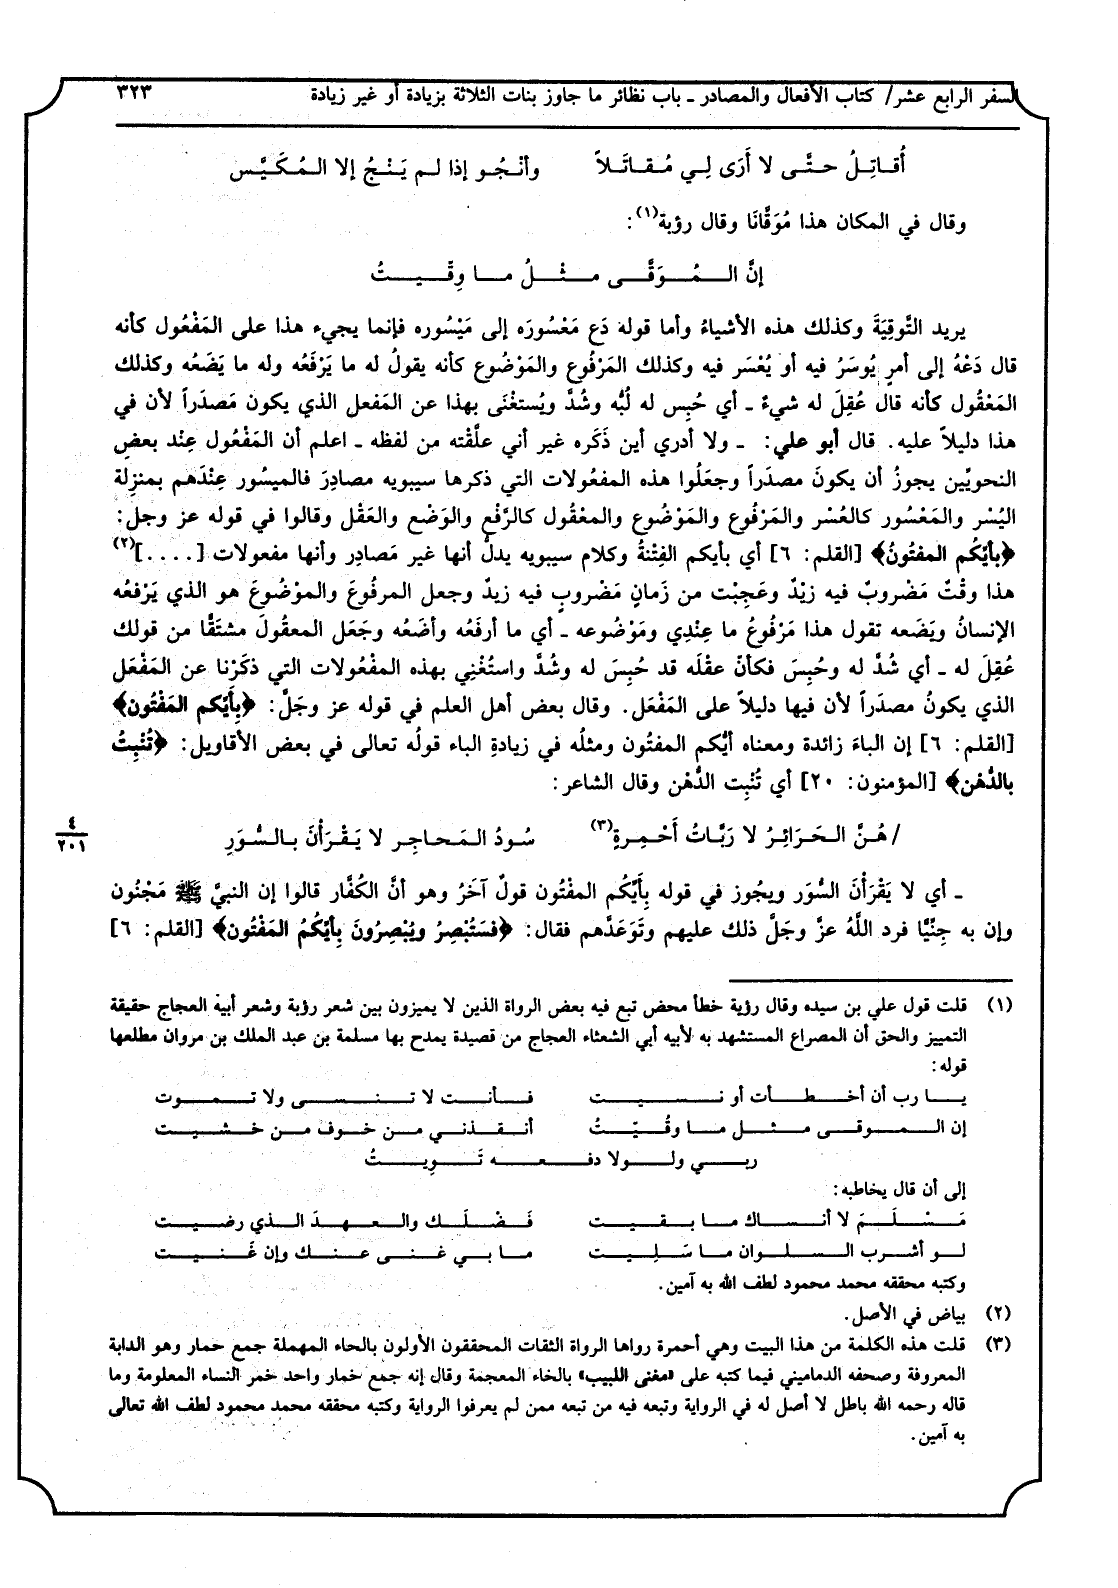 السفر الرابع عشر/ كتاب الأفعال والمصادر ـ باب نظائر ما جاوز بنات الثلاثة بزيادة أو غير زيادة ٣٢٣
أُقاتِلُ حتَّى لا أَرَى لِي مُقاتَلاً وأنْجُو إذا لم يَنْجُ إلا المُكَيَّس
وقال في المكان هذا مُوَقَّانَا وقال رؤبة(١):
إنَّ المُوَقَّى مثْلُ ما وِقِّيتُ
يريد التَّوقِيَةَ وكذلك هذه الأشياءُ وأما قوله دَع مَعْسُورَه إلى مَيْسُوره فإنما يجيء هذا على المَفْعُول كأنه
قال دَعْهُ إلى أمرٍ يُوسَرُ فيه أو يُعْسَر فيه وكذلك المَرْفُوع والمَوْضُوع كأنه يقولُ له ما يَرْفَعُه وله ما يَضَعُه وكذلك
المَعْقُول كأنه قال عُقِلَ له شيءٌ ـ أي حُبِس له لُبُّه وشُدَّ ويُستغْنَى بهذا عن المَفعل الذي يكون مَصدَراً لأن في
هذا دليلاً عليه. قال أبو علي: ـ ولا أدري أين ذَكَره غير أني علَّقته من لفظه ـ اعلم أن المَفْعُول عِنْد بعض
النحويِّين يجوزُ أن يكونَ مصدَراً وجعَلُوا هذه المفعُولات التي ذكرها سيبويه مصادِرَ فالميسُور عِنْدَهم بمنزِلة
اليُسْر والمَعْسُور كالعُسْر والمَرْفُوع والمَوْضُوع والمعْقُول كالرَّفْع والوَضْع والعَقْل وقالوا في قوله عز وجل:
﴿بأيِّكُم المفتُونُ﴾ [القلم: ٦] أي بأيكم الفِتْنةُ وكلام سيبويه يدلُّ أنها غير مَصادِر وأنها مفعولات [....](٢)
هذا وقْتٌ مَضْروبٌ فيه زيْدٌ وعَجِبْت من زَمانٍ مَضْروبٍ فيه زيدٌ وجعل المرفُوعَ والموْضُوعَ هو الذي يَرْفعُه
الإنسانُ ويَضَعه تقول هذا مَرْفُوعُ ما عِنْدِي ومَوْضُوعه ـ أي ما أرفَعُه وأضَعُه وجَعَل المعقُولَ مشتَقًّا من قولك
عُقِلَ له ـ أي شُدَّ له وحُبِسَ فكأنّ عقْلَه قد حُبِسَ له وشُدَّ واستُغْنِي بهذه المفْعُولات التي ذكَرْنا عن المَفْعَل
الذي يكونُ مصدَراً لأن فيها دليلاً على المَفْعَل. وقال بعض أهل العلم في قوله عز وجَلَّ: ﴿بِأَيِّكم المَفْتُون﴾
[القلم: ٦] إن الباءَ زائدة ومعناه أيُّكم المفتُون ومثلُه في زيادةِ الباء قولُه تعالى في بعض الأقاويل: ﴿تُنْبِتُ
بالدُّهْن﴾ [المؤمنون: ٢٠] أي تُنْبِت الدُّهْن وقال الشاعر:
٤
٢٠١
/ هُنَّ الحَرائِرُ لا رَبَّاتُ أَحْمِرةٍ(٣) سُودُ المَحاجِر لا يَقْرَأْنَ بالسُّوَرِ
ـ أي لا يَقْرَأْنَ السُّوَر ويجُوز في قوله بِأَيِّكُم المفْتُون قولٌ آخَرُ وهو أنَّ الكُفَّار قالوا إن النبيَّ ﷺ مَجْنُون
وإن به جِنِّيًّا فرد اللَّهُ عزَّ وجَلَّ ذلك عليهم وتَوَعَدَّهم فقال: ﴿فسَتُبْصِرُ ويُبْصِرُونَ بِأَيِّكُمُ المَفْتُون﴾ [القلم: ٦]
(١) قلت قول علي بن سيده وقال رؤية خطأ محض تبع فيه بعض الرواة الذين لا يميزون بين شعر رؤبة وشعر أبيه العجاج حقيقة
التمييز والحق أن المصراع المستشهد به لأبيه أبي الشعثاء العجاج من قصيدة يمدح بها مسلمة بن عبد الملك بن مروان مطلعها
قوله:
يا رب أن أخطأت أو نسيت فأنت لا تنسى ولا تموت
إن الموقى مثل ما وقُيّتُ أنقذني من خوف من خشيت
ربي ولولا دفعه تَوِيتُ
إلى أن قال يخاطبه:
مَسْلَمَ لا أنساك ما بقيت فَضْلَك والعهدَ الذي رضيت
لو أشرب السلوان ما سَلِيت ما بي غنى عنك وإن غَنيت
وكتبه محققه محمد محمود لطف الله به آمين.
(٢) بياض في الأصل.
(٣) قلت هذه الكلمة من هذا البيت وهي أحمرة رواها الرواة الثقات المحققون الأولون بالحاء المهملة جمع حمار وهو الدابة
المعروفة وصحفه الدماميني فيما كتبه على «مغنى اللبيب» بالخاء المعجمة وقال إنه جمع خمار واحد خمر النساء المعلومة وما
قاله رحمه الله باطل لا أصل له في الرواية وتبعه فيه من تبعه ممن لم يعرفوا الرواية وكتبه محققه محمد محمود لطف الله تعالى
به آمين.